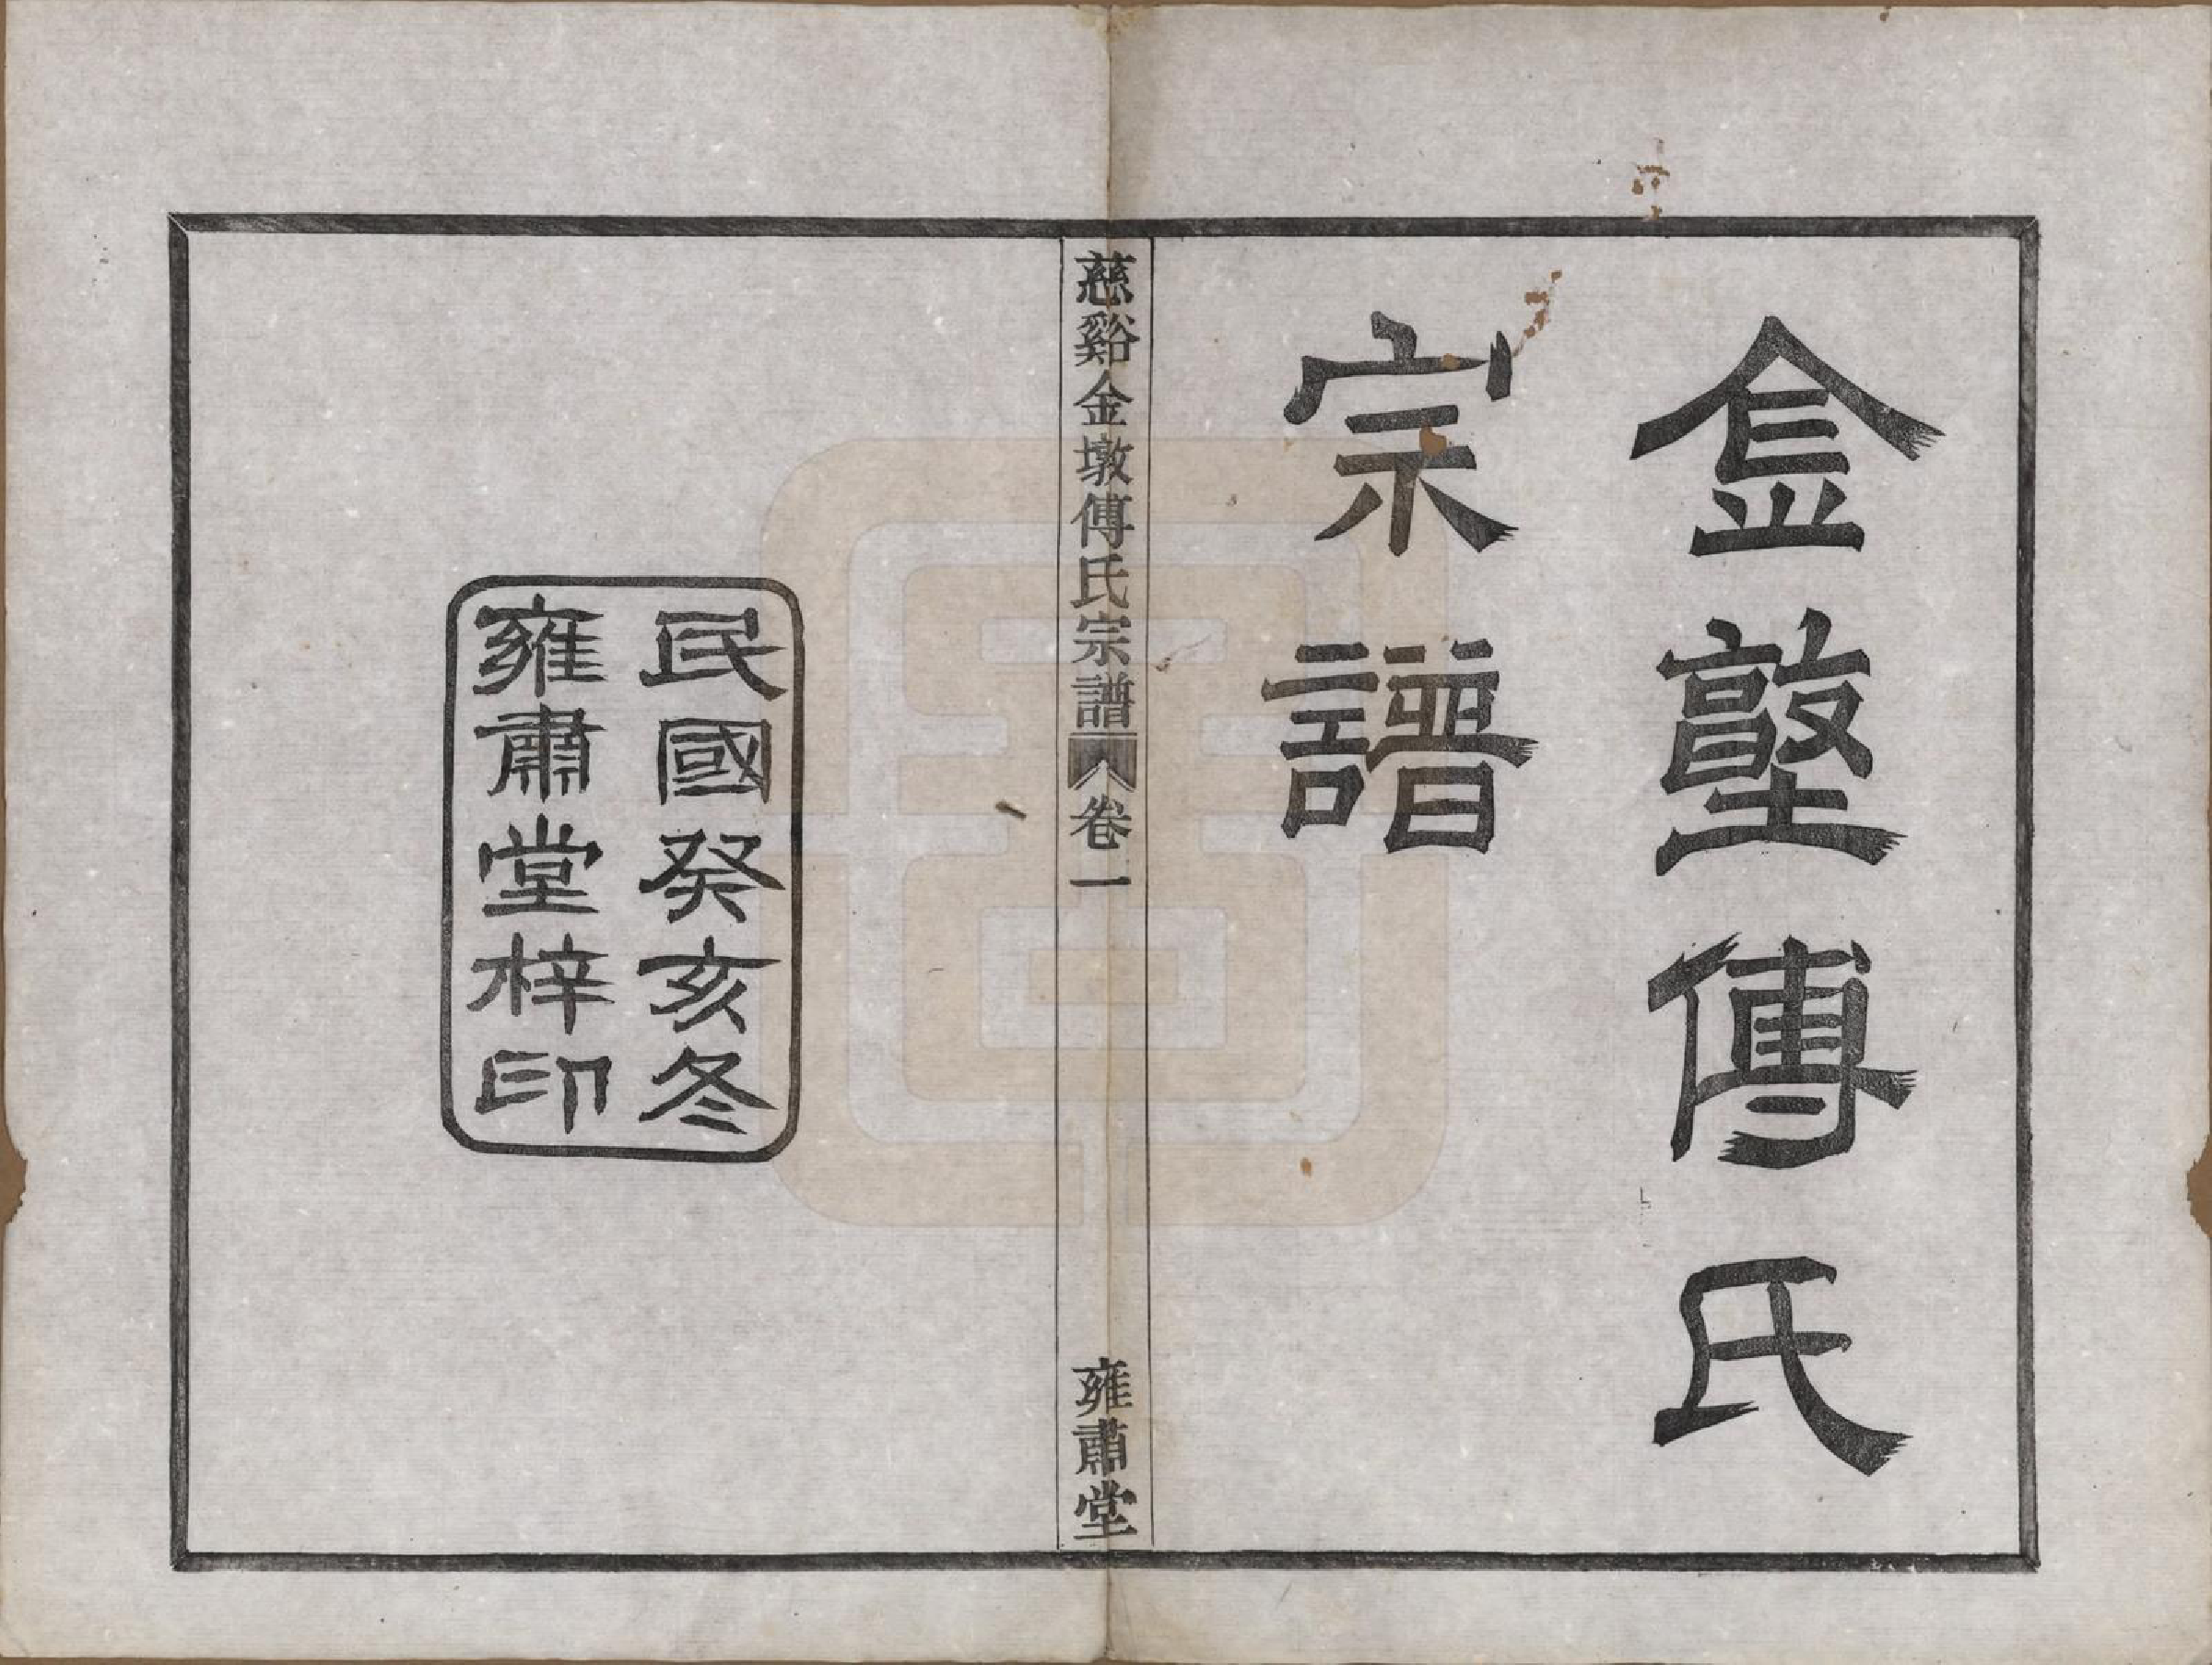 金墪傅氏
宗譜
慈谿金墩傅氏宗譜 卷一 雍肅堂
民國癸亥冬
雍肅堂梓印